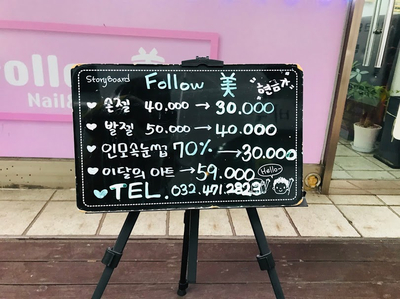 Follow 美
Nail&
StoryBoard
Follow 美 현금가
손젤 40.000 → 30.000
발젤 50.000 → 40.000
인모속눈썹 70% → 30.000
이달의 아트 → 59.000
Hello~
TEL. 032.471.2823